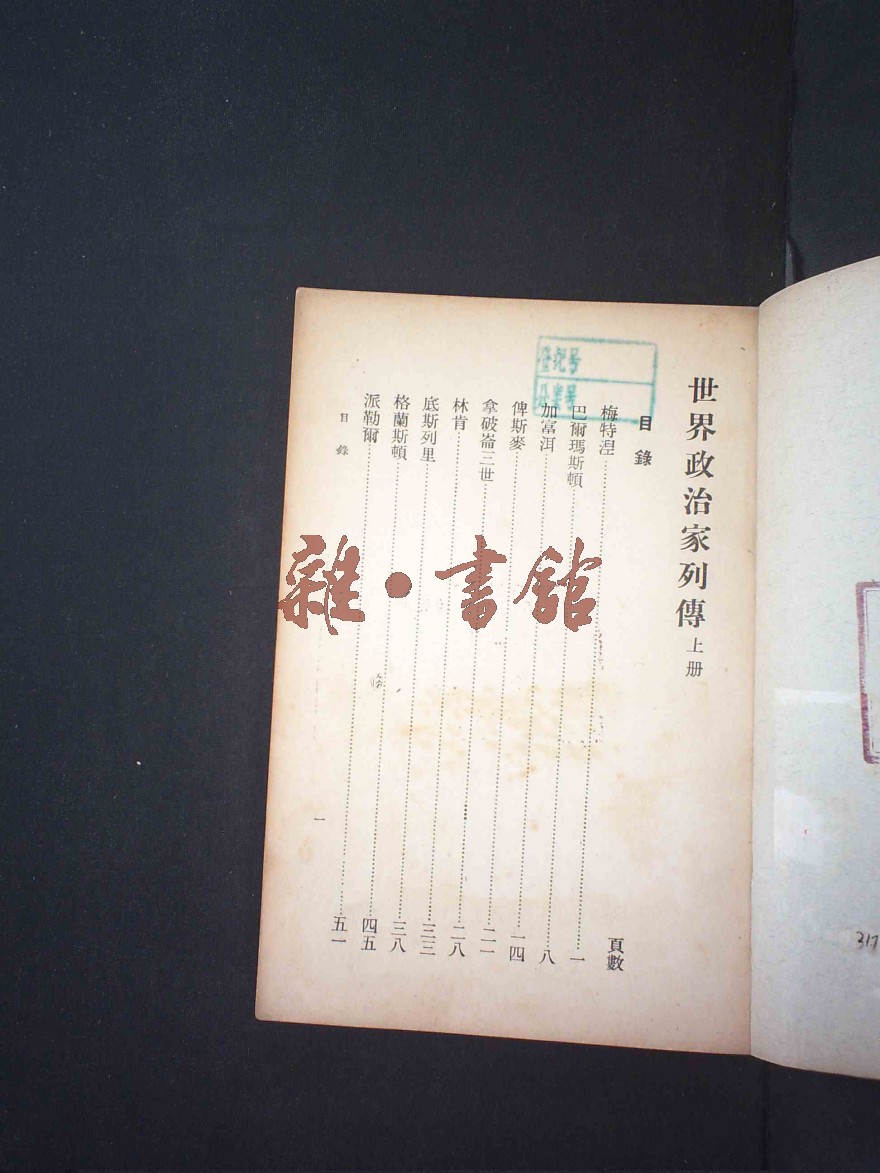 世界政治家列傳 上册
目錄
頁數
梅特涅……一
巴爾瑪斯頓……八
加富洱……一四
俾斯麥……二一
拿破崙三世……二八
林肯……三三
底斯列里……三八
格蘭斯頓……四五
派勒爾……五一
目錄
一
登記号
雜·書館
317